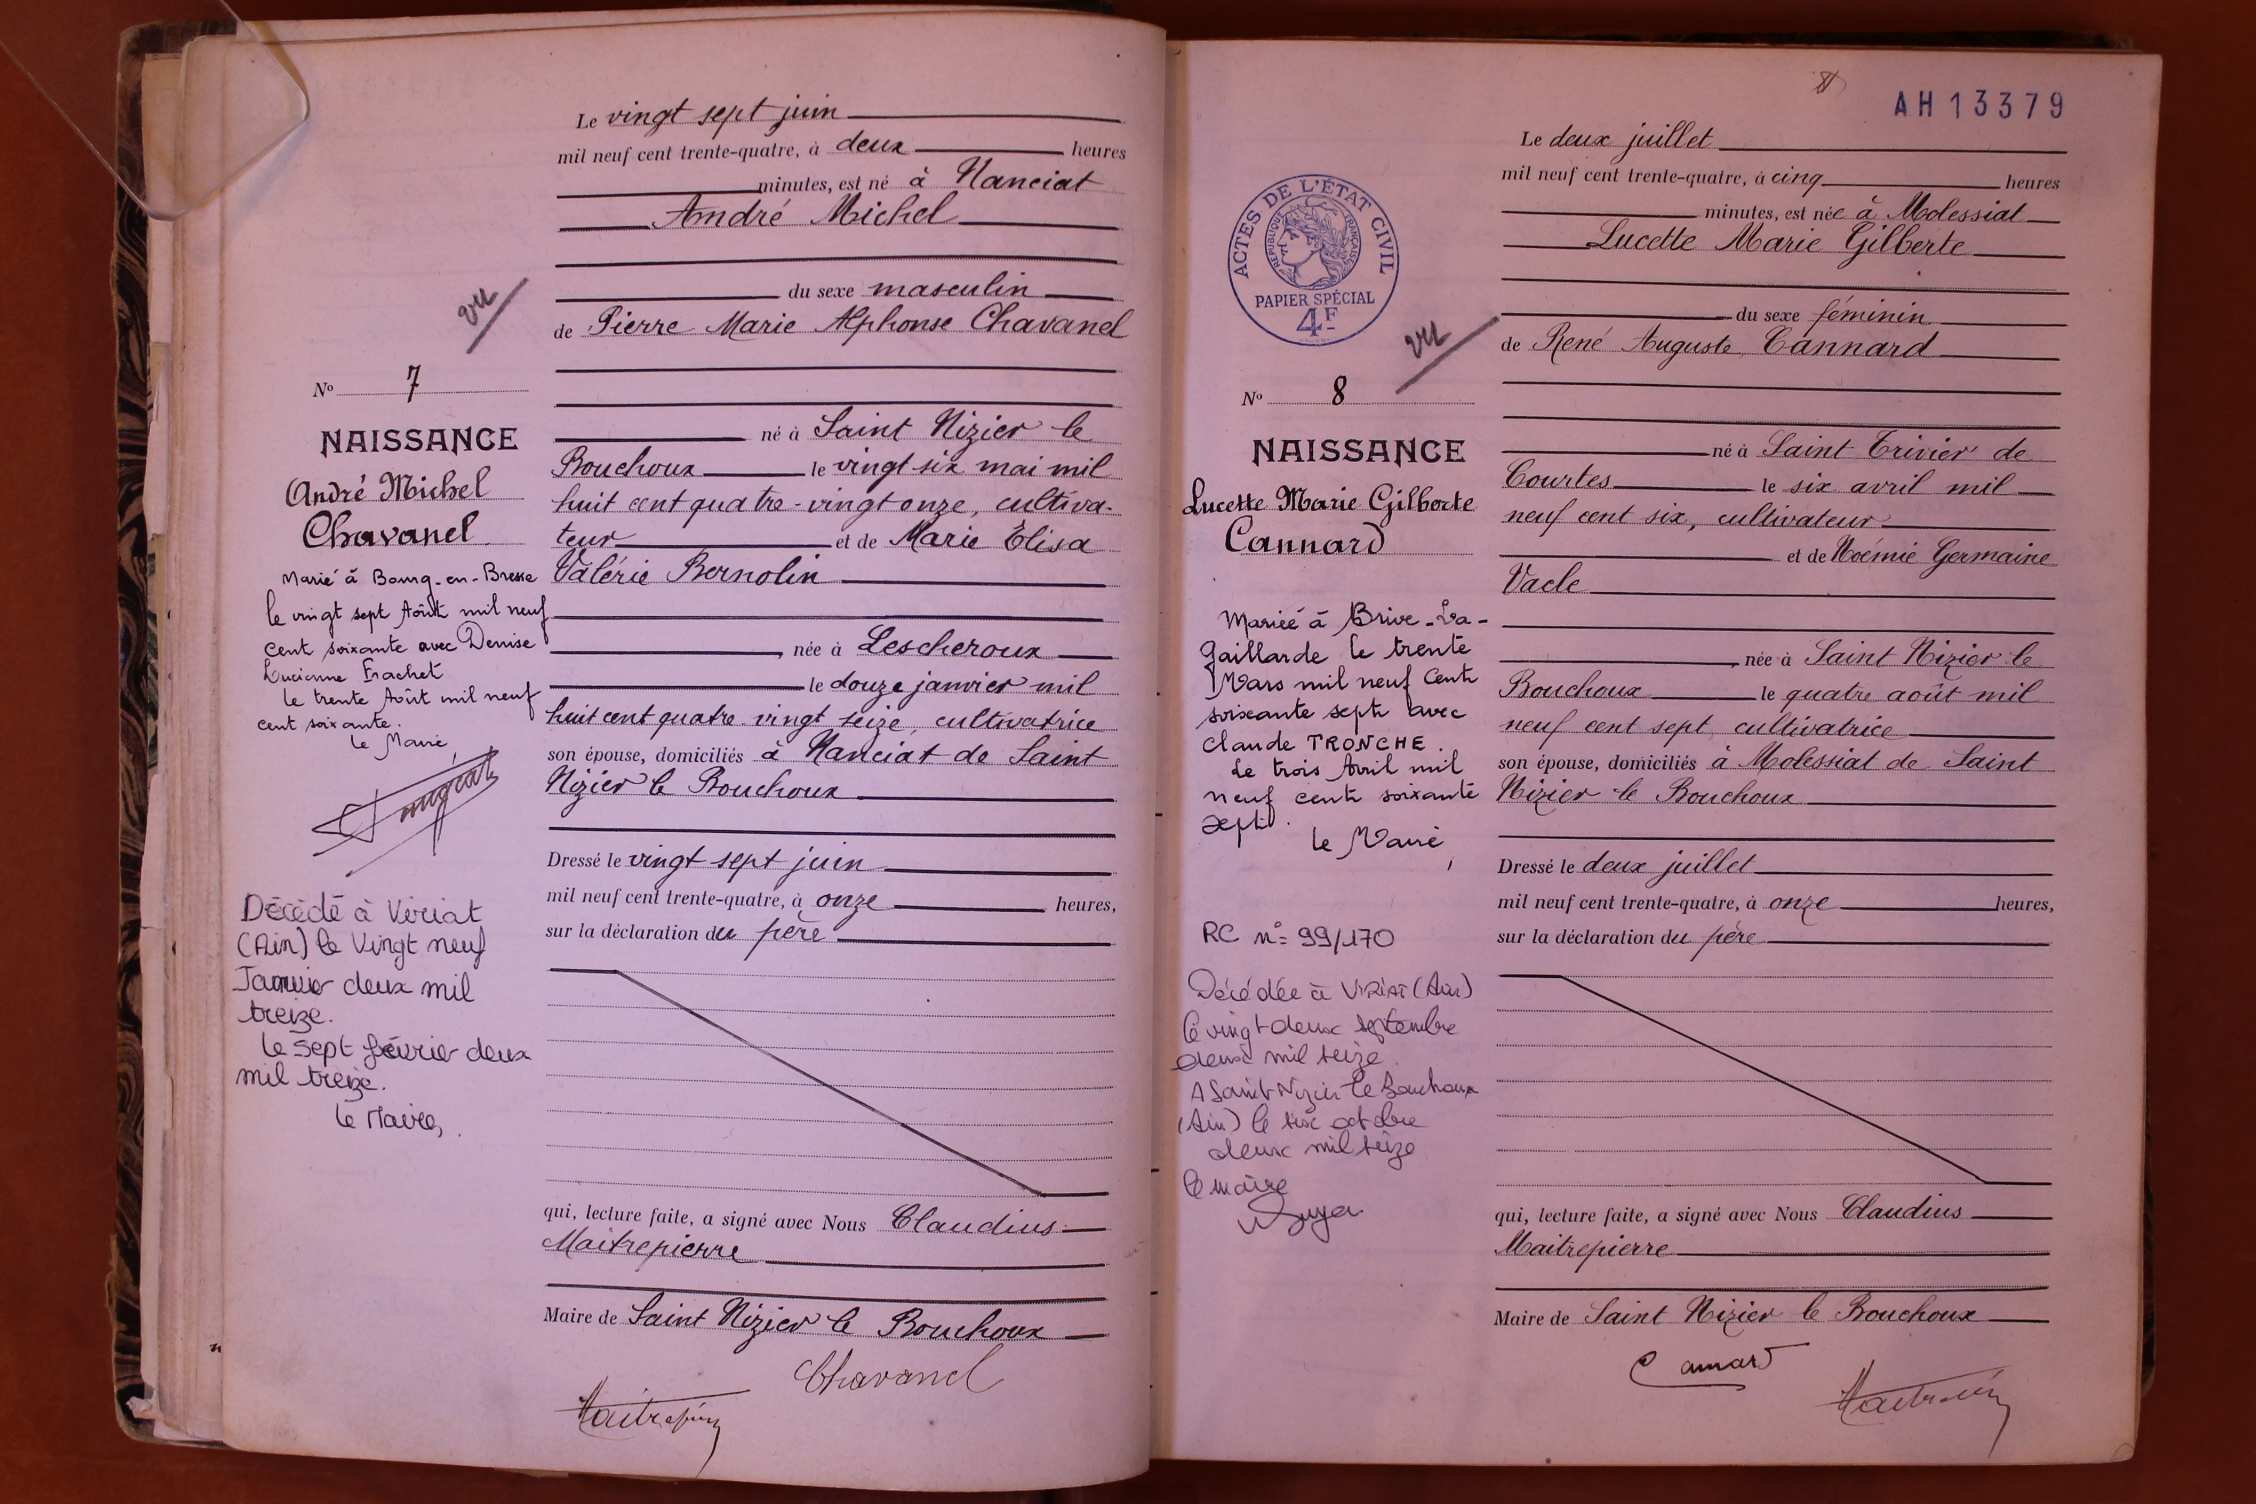 Le vingt sept juin
mil neuf cent trente-quatre, à deux heures
minutes, est né à Nanciat
André Michel
du sexe masculin
vu
de Pierre Marie Alphonse Chavanel
N° 7
né à Saint Nizier le
NAISSANCE
Bouchoux le vingt six mai mil
André Michel
huit cent quatre-vingt onze, cultiva-
Chavanel
teur et de Marie Élisa
Valérie Bernolin
née à Lescheroux
le douze janvier mil
huit cent quatre vingt seize, cultivatrice
son épouse, domiciliés à Nanciat de Saint
Nizier le Bouchoux
Marié à Bourg-en-Bresse
le vingt sept Août mil neuf
cent soixante avec Denise
Lucienne Frachet
le trente Août mil neuf
cent soixante.
le Maire,
Dressé le vingt sept juin
mil neuf cent trente-quatre, à onze heures,
sur la déclaration du père
Décédé à Viriat
(Ain) le Vingt neuf
Janvier deux mil
treize.
Le sept février deux
mil treize.
Le Maire,
qui, lecture faite, a signé avec Nous Claudius
Maitrepierre
Maire de Saint Nizier le Bouchoux
Chavanel
Maitrepierre
AH13379
Le deux juillet
mil neuf cent trente-quatre, à cinq heures
minutes, est née à Molessiat
Lucette Marie Gilberte
ACTES DE L'ÉTAT CIVIL
RÉPUBLIQUE FRANÇAISE
PAPIER SPÉCIAL
4F
du sexe féminin
vu
de René Auguste Cannard
N° 8
né à Saint Trivier de
NAISSANCE
Courtes le six avril mil
Lucette Marie Gilberte
neuf cent six, cultivateur
Cannard
et de Noémie Germaine
Vacle
née à Saint Nizier le
Bouchoux le quatre août mil
neuf cent sept, cultivatrice
son épouse, domiciliés à Molessiat de Saint
Nizier le Bouchoux
Mariée à Brive-La-
Gaillarde le trente
Mars mil neuf Cent
soixante sept avec
Claude TRONCHE.
Le trois Avril mil
neuf cent soixante
sept.
le Maire,
Dressé le deux juillet
mil neuf cent trente-quatre, à onze heures,
sur la déclaration du père
RC n° 99/170
Décédée à VIRIAT (Ain)
le vingt deux septembre
deux mil seize.
A Saint Nizier le Bouchoux
(Ain) le six octobre
deux mil seize
le maire
qui, lecture faite, a signé avec Nous Claudius
Maitrepierre
Maire de Saint Nizier le Bouchoux
Cannard
Maitrepierre